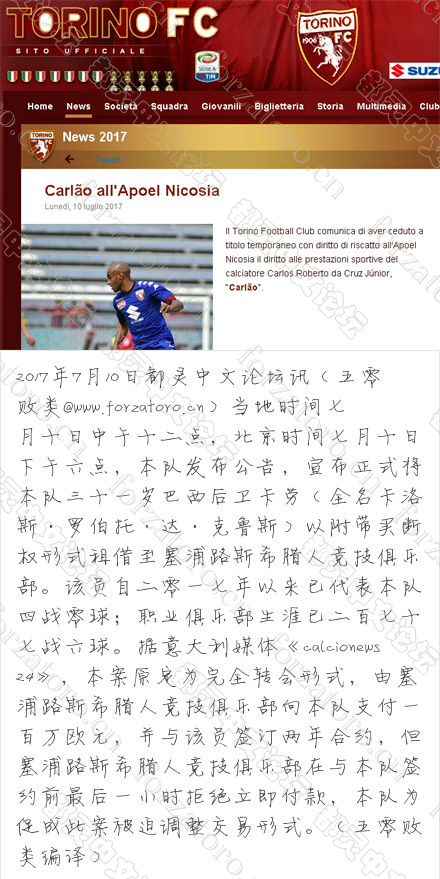 TORINO FC
SITO UFFICIALE
SERIE A
TIM
TORINO
1906 FC
SUZU
Home News Società Squadra Giovanili Biglietteria Storia Multimedia Club
TORINO
News 2017
Tweet
Carlão all'Apoel Nicosia
Lunedì, 10 luglio 2017
Il Torino Football Club comunica di aver ceduto a
titolo temporaneo con diritto di riscatto all'Apoel
Nicosia il diritto alle prestazioni sportive del
calciatore Carlos Roberto da Cruz Júnior,
"Carlão".
2017年7月10日都灵中文论坛讯（五零
败类@www.forzatoro.cn）当地时间七
月十日中午十二点，北京时间七月十日
下午六点，本队发布公告，宣布正式将
本队三十一岁巴西后卫卡劳（全名卡洛
斯·罗伯托·达·克鲁斯）以附带买断
权形式租借至塞浦路斯希腊人竞技俱乐
部。该员自二零一七年以来已代表本队
四战零球；职业俱乐部生涯已二百七十
七战六球。据意大利媒体《calcionews
24》，本案原定为完全转会形式，由塞
浦路斯希腊人竞技俱乐部向本队支付一
百万欧元，并与该员签订两年合约，但
塞浦路斯希腊人竞技俱乐部在与本队签
约前最后一小时拒绝立即付款，本队为
促成此案被迫调整交易形式。（五零败
类编译）
都灵中文论坛
forzatoro.cn